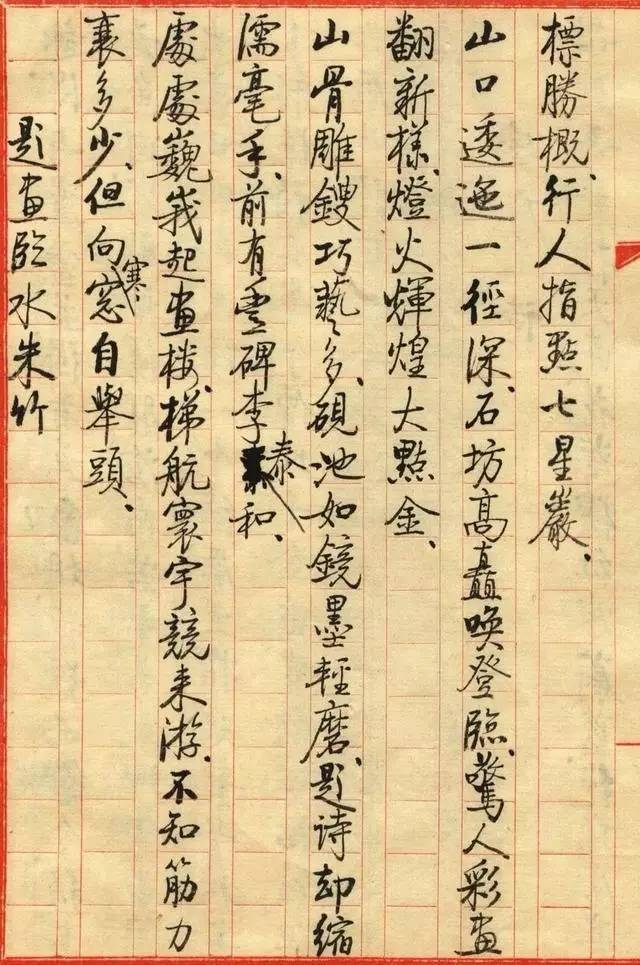 標勝概、行人指點七星巖、
山口逶迤一徑深、石坊高矗喚登臨、驚人彩畫
翻新樣、燈火輝煌大點金、
山骨雕鎪巧藝多、硯池如鏡墨輕磨、題诗却縮
濡毫手、前有豐碑李泰和、
處處巍峩起畫樓、梯航寰宇競来游、不知筋力
衰多少、但向寒窓自舉頭、
題畫臨水朱竹